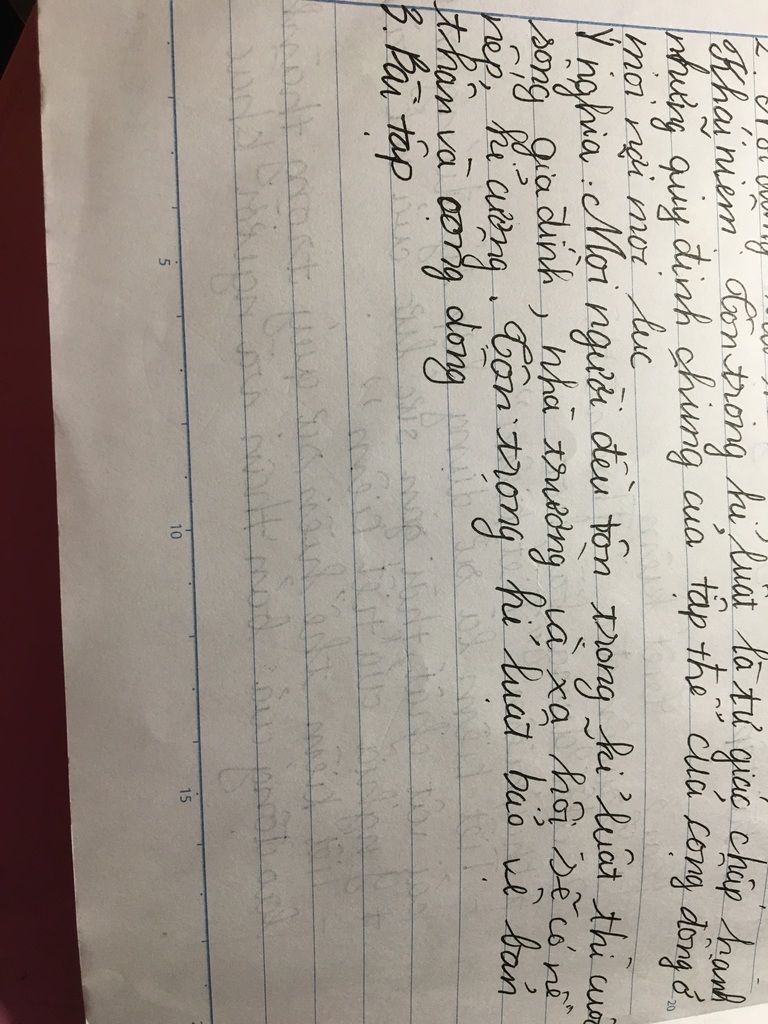 2. Nội dung
Khái niệm: Tôn trọng kỉ luật là tự giác chấp hành
những quy định chung của tập thể của cộng đồng ở
mọi nơi mọi lúc
Ý nghĩa: Mọi người đều tôn trọng kỉ luật thì cuộc
sống gia đình, nhà trường và xã hội sẽ có nề
nếp, kỉ cương. Tôn trọng kỉ luật bảo vệ bản
thân và cộng đồng
3. Bài tập
5
10
15
20